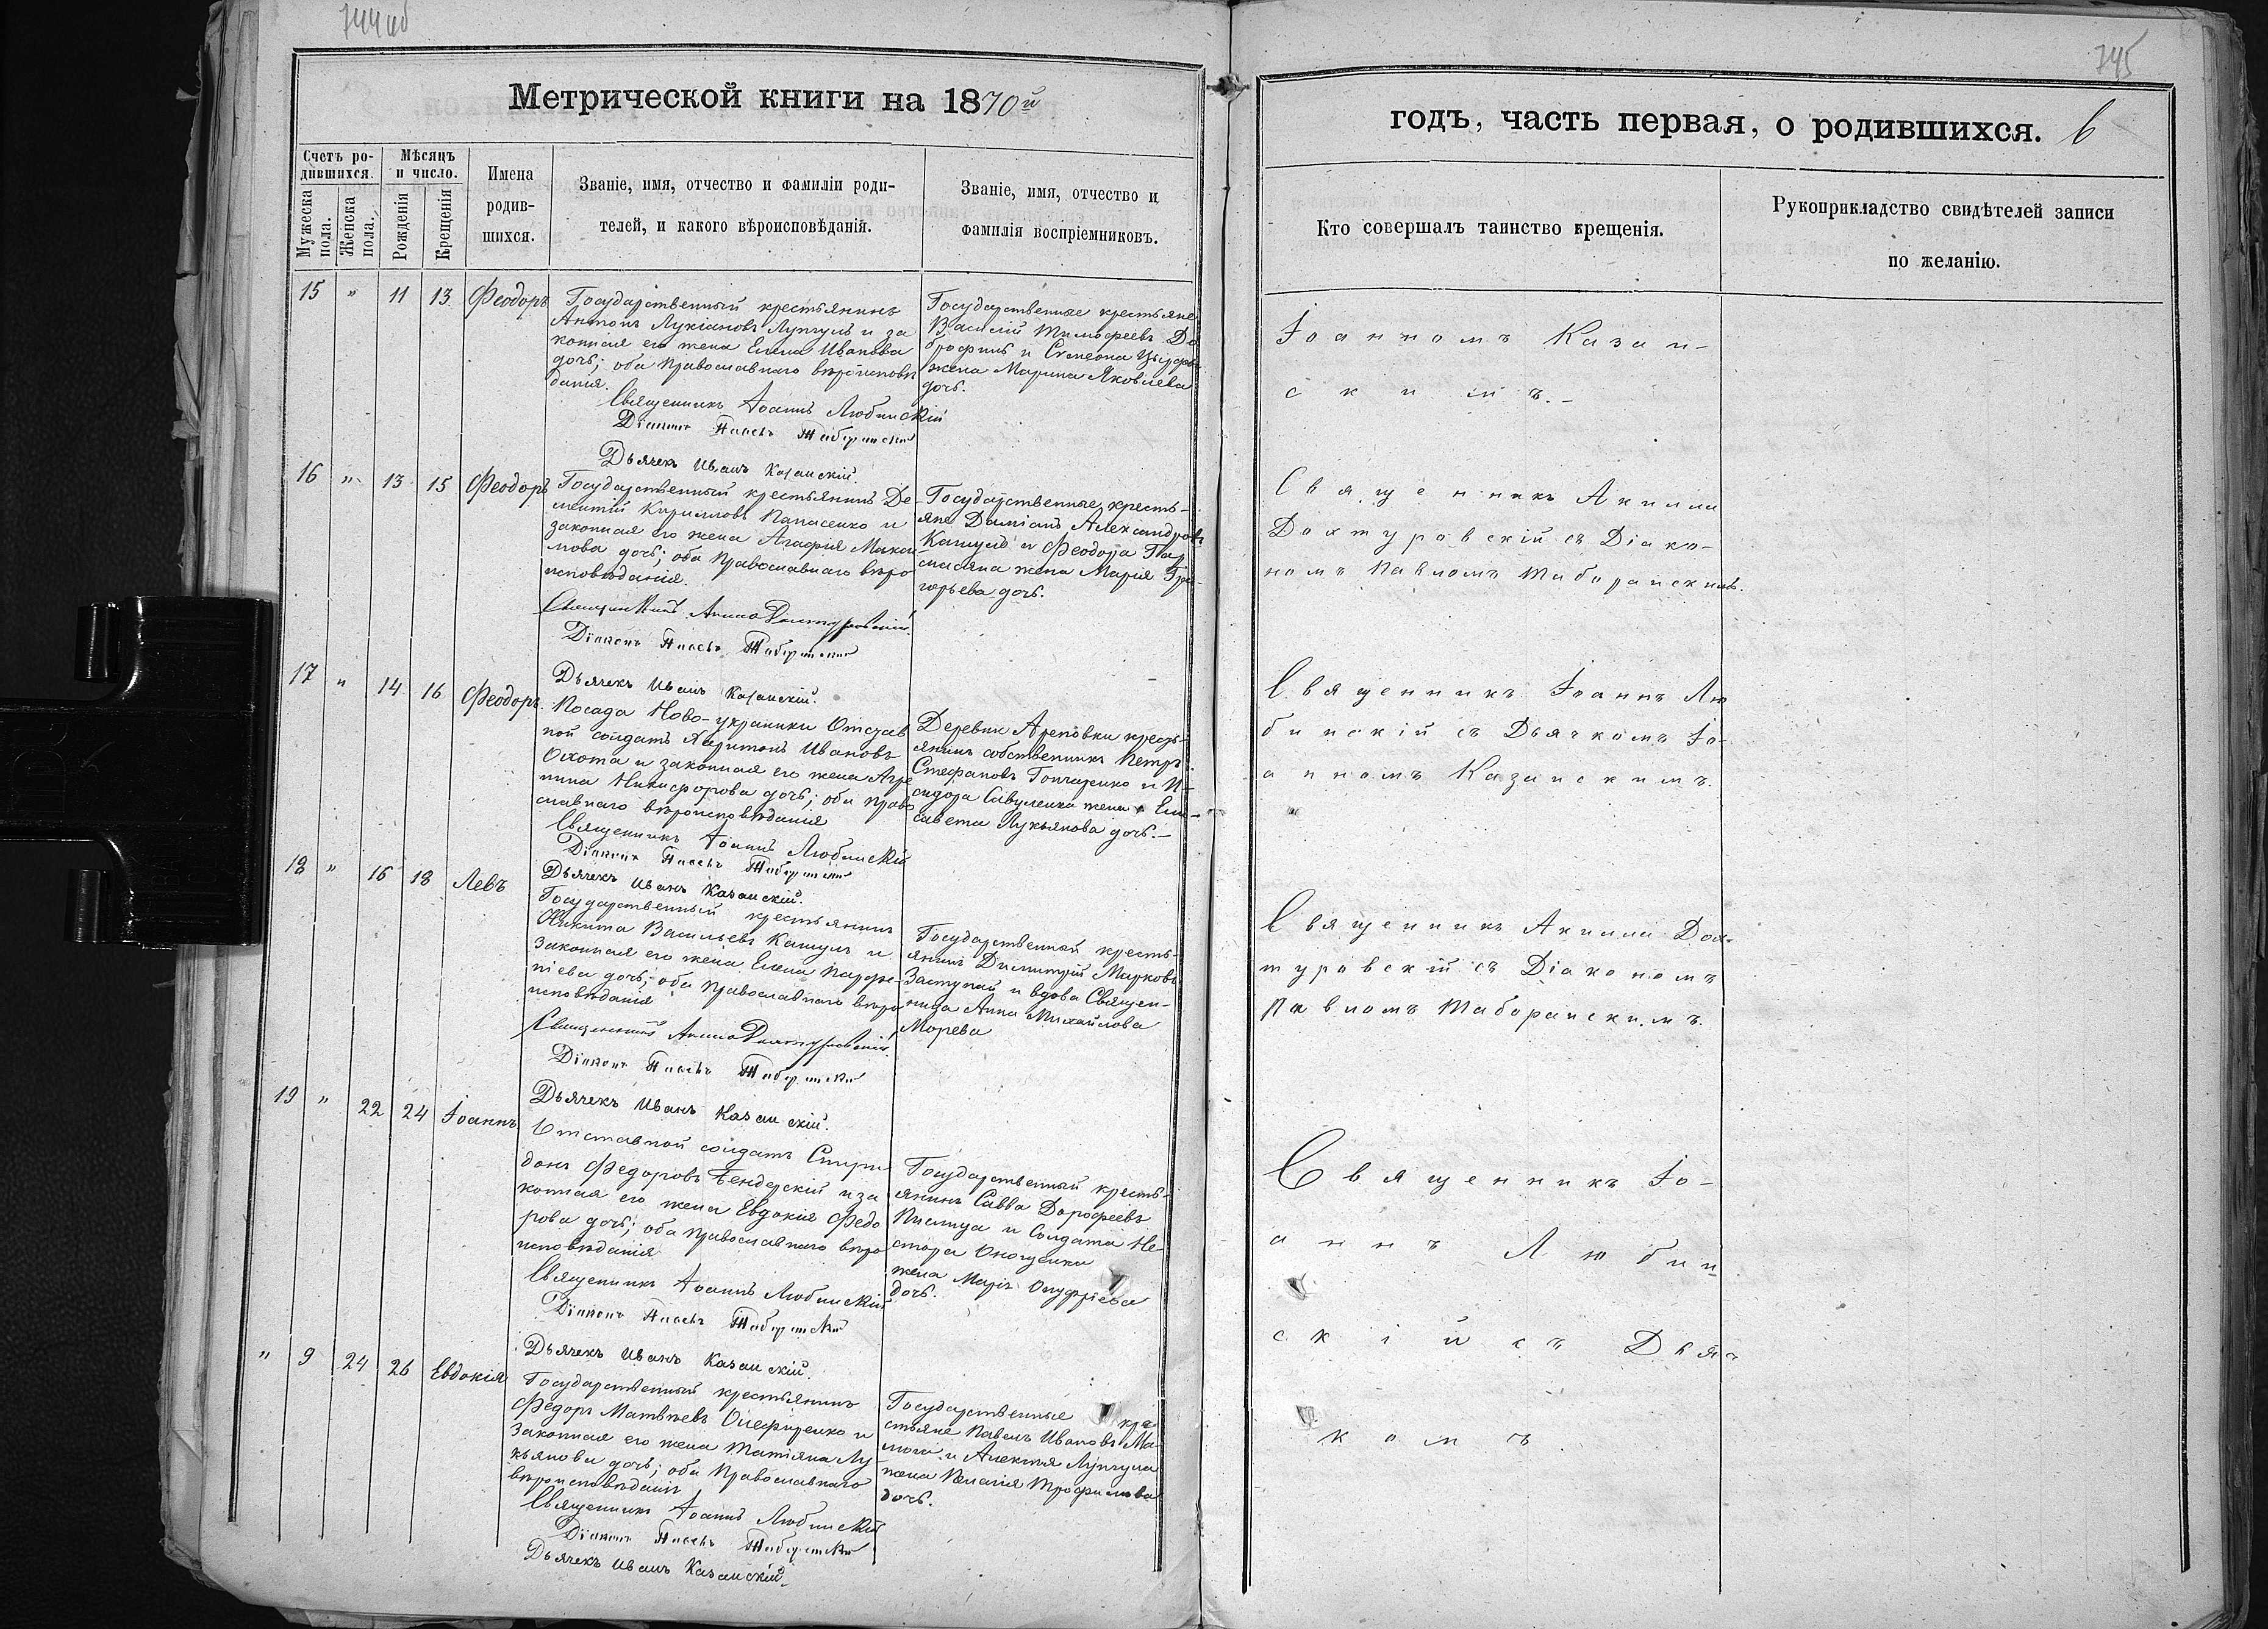 744 об
Метрической книги на 1870й
Счетъ родившихся.
Мужеска пола.
Женска пола.
Мѣсяцъ и число.
Рожденія
Крещенія
Имена родившихся.
Званіе, имя, отчество и фамиліи родителей, и какого вѣроисповѣданія.
Званіе, имя, отчество и фамилія воспріемниковъ.
15 " 11 13 Феодоръ
Государственный крестьянинъ
Антонъ Лукіановъ Лупулъ и за
конная его жена Елена Иванова
дочь; оба православнаго вѣроисповѣ
данія.
Священникъ Іоаннъ Любинскій
Діаконъ Павелъ
Дьячекъ Иванъ Казанскій.
Государственные крестьяне
Василій Тимофеевъ До
и Симеона
жена Марина Яковлева
дочь.
16 " 13 15 Феодоръ
Государственный крестьянинъ Де
ментій Кирилловъ Панасенко и
законная его жена Агафія Макси
мова дочь; оба православнаго вѣро
исповѣданія.
Священникъ Акила Дохтуровскій
Діаконъ Павелъ
Дьячекъ Иванъ Казанскій.
Государственные кресть-
яне Даміанъ Александровъ
Кашулъ и Феодора
жена Марія Гри-
горьева дочь.
17 " 14 16 Феодоръ.
Посада Ново-украинки Отстав
ной солдатъ Харитонъ Ивановъ
Охота и законная его жена Агре
пина Никифорова дочь; оба право
славнаго вѣроисповѣданія
Священникъ Іоаннъ Любинскій
Діаконъ Павелъ
Дьячекъ Иванъ Казанскій.
Деревни Ареповки кресть-
янинъ собственникъ Петръ
Стефановъ Гончаренко и И-
сидора Савуленка жена Ели-
савета Лукьянова дочь.-
18 " 16 18 Левъ
Государственный крестьянинъ
Никита Васильевъ Кашулъ и
законная его жена Елена Парфе-
ніева дочь; оба православнаго вѣро
исповѣданія
Священникъ Акила Дохтуровскій
Діаконъ Павелъ
Дьячекъ Иванъ Казанскій.
Государственный кресть-
янинъ Димитрій Марковъ
Заступай и вдова Священ-
ница Анна Михайлова
Морева
19 " 22 24 Іоаннъ
Отставной солдатъ Спири-
донъ Федоровъ Бендерскій и за
конная его жена Евдокія Федо
рова дочь; оба православнаго вѣро
исповѣданія
Священникъ Іоаннъ Любинскій
Діаконъ Павелъ
Дьячекъ Иванъ Казанскій.
Государственный кресть-
янинъ Савва Дорофеевъ
и Солдата Не-
стора
жена Онуфріева
дочь.
" 9 24 26 Евдокія
Государственный крестьянинъ
Федоръ Матвѣевъ Олефиренко и
законная его жена Татіяна Лу
кьянова дочь; оба православнаго
вѣроисповѣданія
Священникъ Іоаннъ Любинскій
Діаконъ Павелъ
Дьячекъ Иванъ Казанскій.
Государственные кре-
стьяне Павелъ Ивановъ Ма-
и Алексѣя Лупула
жена Пелагія Трофимова
дочь.
745
годъ, часть первая, о родившихся. 6
Кто совершалъ таинство крещенія.
Рукоприкладство свидѣтелей записи
по желанію.
Іоанномъ Казан-
скимъ.-
Священникъ Акила
Дохтуровскій съ Діако-
номъ Павломъ
Священникъ Іоаннъ Лю
бинскій съ Дьячкомъ Іо-
анномъ Казанскимъ.
Священникъ Акила Дох-
туровскій съ Діакономъ
Павломъ
Священникъ Іо-
аннъ Любин
скій съ Дьяч
комъ.